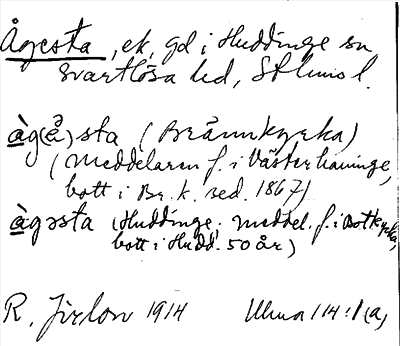 Ågesta, ek, gd i Huddinge sn
Svartlösa hd, Sthlms l.
àg(å)sta (Brännkyrka)
(Meddelaren f. i Västerhaninge,
bott i Br. k. sed. 1867)
àgəsta (Huddinge; meddel. f. i Botkyrka,
bott i Hudd. 50 år)
R. Jirlow 1914 Ulma 114:1(a)